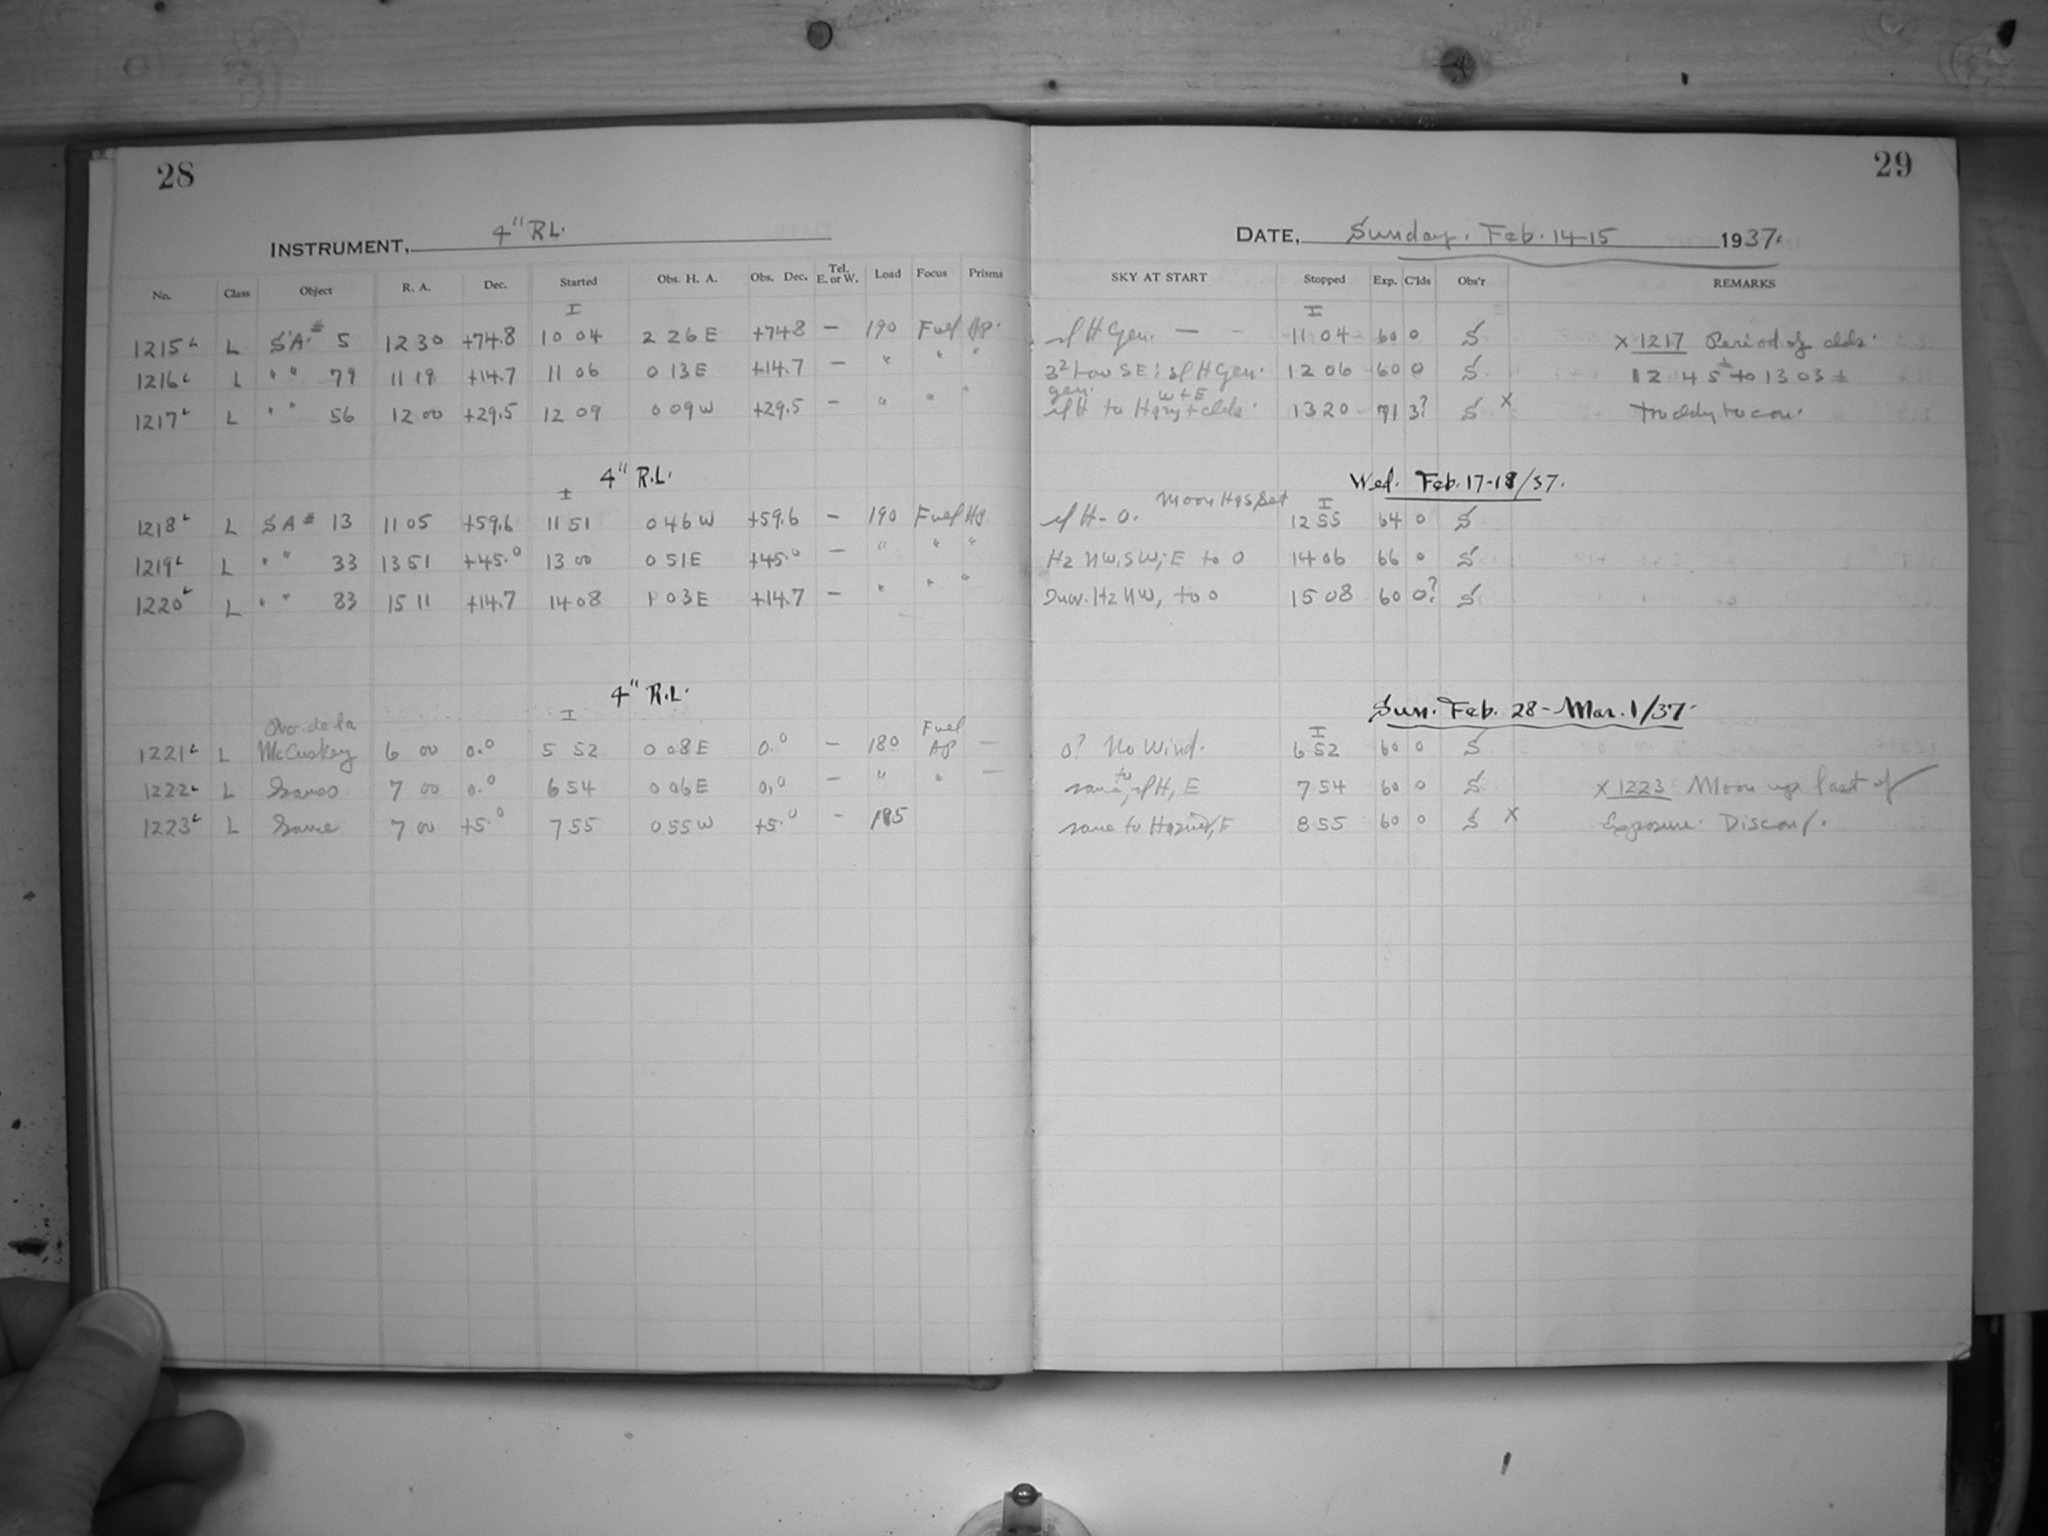 28
29
INSTRUMENT, 4" R.L.
DATE, Sunday. Feb. 14-15 1937.
No. Class Object R. A. Dec. Started Obs. H. A. Obs. Dec. Tel. E. or W. Load Focus Prisms SKY AT START Stopped Exp. C'lds Obs'r REMARKS
I I
1215 L L SA # 5 12 30 +74.8 10 04 2 26 E +74.8 — 190 Gen. — 11 04 60 0 S X 1217 Period of clds.
1216 L L " " 79 11 19 +14.7 11 06 0 13 E +14.7 — " " " Low SE; Gen. 12 06 60 0 S 12 45± to 13 03 ±
1217 L L " " 56 12 00 +29.5 12 09 0 09 W +29.5 — " " " gen. to W + E + clds. 13 20 71 3? S X
4" R.L. Wed. Feb. 17-18/37.
± Moon Set I
1218 L L SA # 13 11 05 +59.6 11 51 0 46 W +59.6 — 190 H-0. 12 55 64 0 S
1219 L L " " 33 13 51 +45.0 13 00 0 51 E +45.0 — " " " Hz NW, SW, E to 0 14 06 66 0 S
1220 L L " " 83 15 11 +14.7 14 08 1 03 E +14.7 — " " " Hz NW, to 0 15 08 60 0? S
4" R.L. Sun. Feb. 28 - Mar. 1/37.
I I
1221 L L McCuskey 6 00 0.0 5 52 0 08 E 0.0 — 180 — 0? No Wind. 6 52 60 0 S
1222 L L 7 00 0.0 6 54 0 06 E 0.0 — " " — same to H, E 7 54 60 0 S X 1223 Moon up last of
1223 L L Same 7 00 +5.0 7 55 0 55 W +5.0 - 185 same to E 8 55 60 0 S X Exposure. Discon.